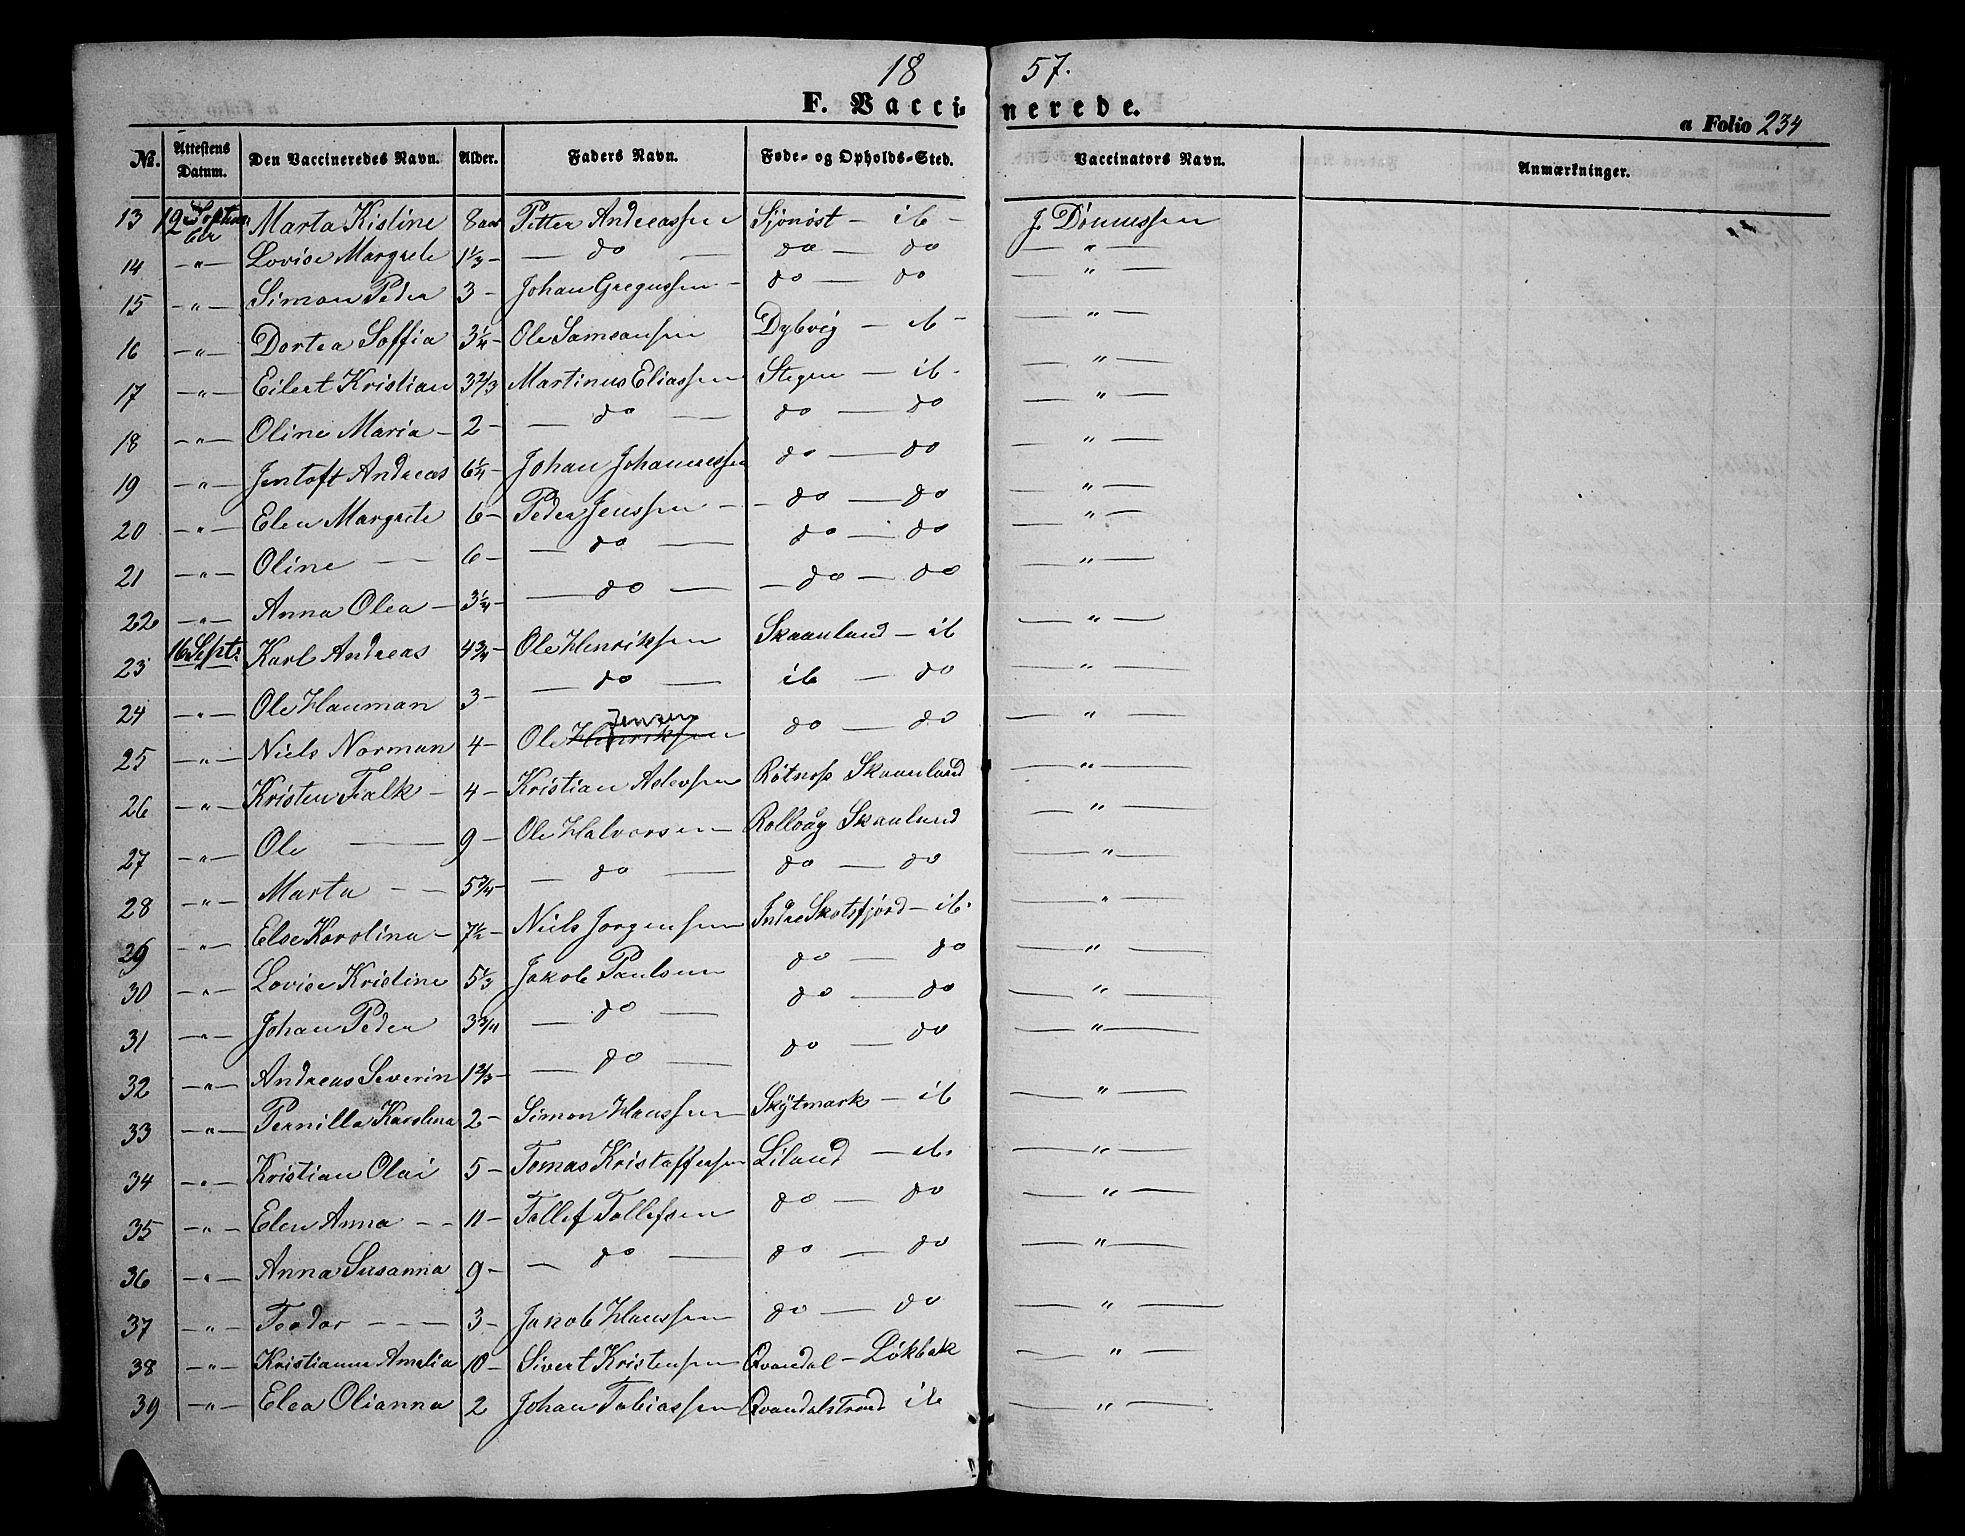 18 57.
F. Vaccinerede.
a Folio 234
No. Attestens Datum. Den Vaccineredes Navn. Alder. Faders Navn. Føde- og Opholds-Sted. Vaccinators Navn. Anmærkninger.
13 12 Septem ber Marta Kistine 8 aar Petter Andreassen Sjønøst - ib - J. Dønnessen
14 -"- Lovise Margrete 1 1/3 - do - do do - " -
15 -"- Simon Peder 3 - Johan Gregussen - do - do - " -
16 -"- Dortea Soffia 3 1/4 - Ole Samsonsen Dybvig - ib - - " -
17 -"- Eilert Kristian 3 2/3 Martinus Eliassen Stegen - ib - - " -
18 -"- Oline Maria - 2 - - do - do - do - " -
19 -"- Jentoft Andreas 6 1/4 Johan Johannessen do - do - " -
20 -"- Elen Margrete 6 - Peder Jenssen - - do - do - " -
21 -"- Oline - - 6 - - do - do - do - " -
22 -"- Anna Olea - 3 1/4 - - do - - do - do - " -
23 16 Septr. Karl Andreas 4 3/4 - Ole Henriksen Skaanland - ib - " -
24 -"- Ole Hauman 3 - - do - ib - do - " -
25 -"- Niels Norman 4 - Ole Henriksen Jensen do - do - " -
26 -"- Kristen Falk - 4 - Kristian Adersen Røtnæs Skaanland - " -
27 -"- Ole - 9 - Ole Halvorsen - Rollvåg Skaanland - " -
28 -"- Marta - - 5 3/4 - - do - do - do - " -
29 -"- Else Karolina - 7 1/2 - Niels Jorgensen Indre Skotsfjord - ib. - " -
30 -"- Lovise Kristine 5 1/3 Jakob Paulsen do - do - " -
31 -"- Johan Peder 3 3/4 - do - do - do - " -
32 -"- Andreas Severin 1 2/3 - - do - do - do - " -
33 -"- Pernilla Karolina 2 - Simon Hanssen Skytmark - ib - " -
34 -"- Kristian Olai 5 - Tomas Kristoffersen Liland - ib. - " -
35 -"- Elen Anna - - 11 - Tollef Tollefsen do - do - " -
36 -"- Anna Susanna 9 - - do - do - do - " -
37 -"- Teodor - - - 3 - Jakob Hanssen do - do - " -
38 -"- Kristianne Amalia 10 - Sivert Kristensen Qvandal - Løkbak - " -
39 -"- Elea Olianna 2 Johan Tobiassen Qvandalstrand ib - " -